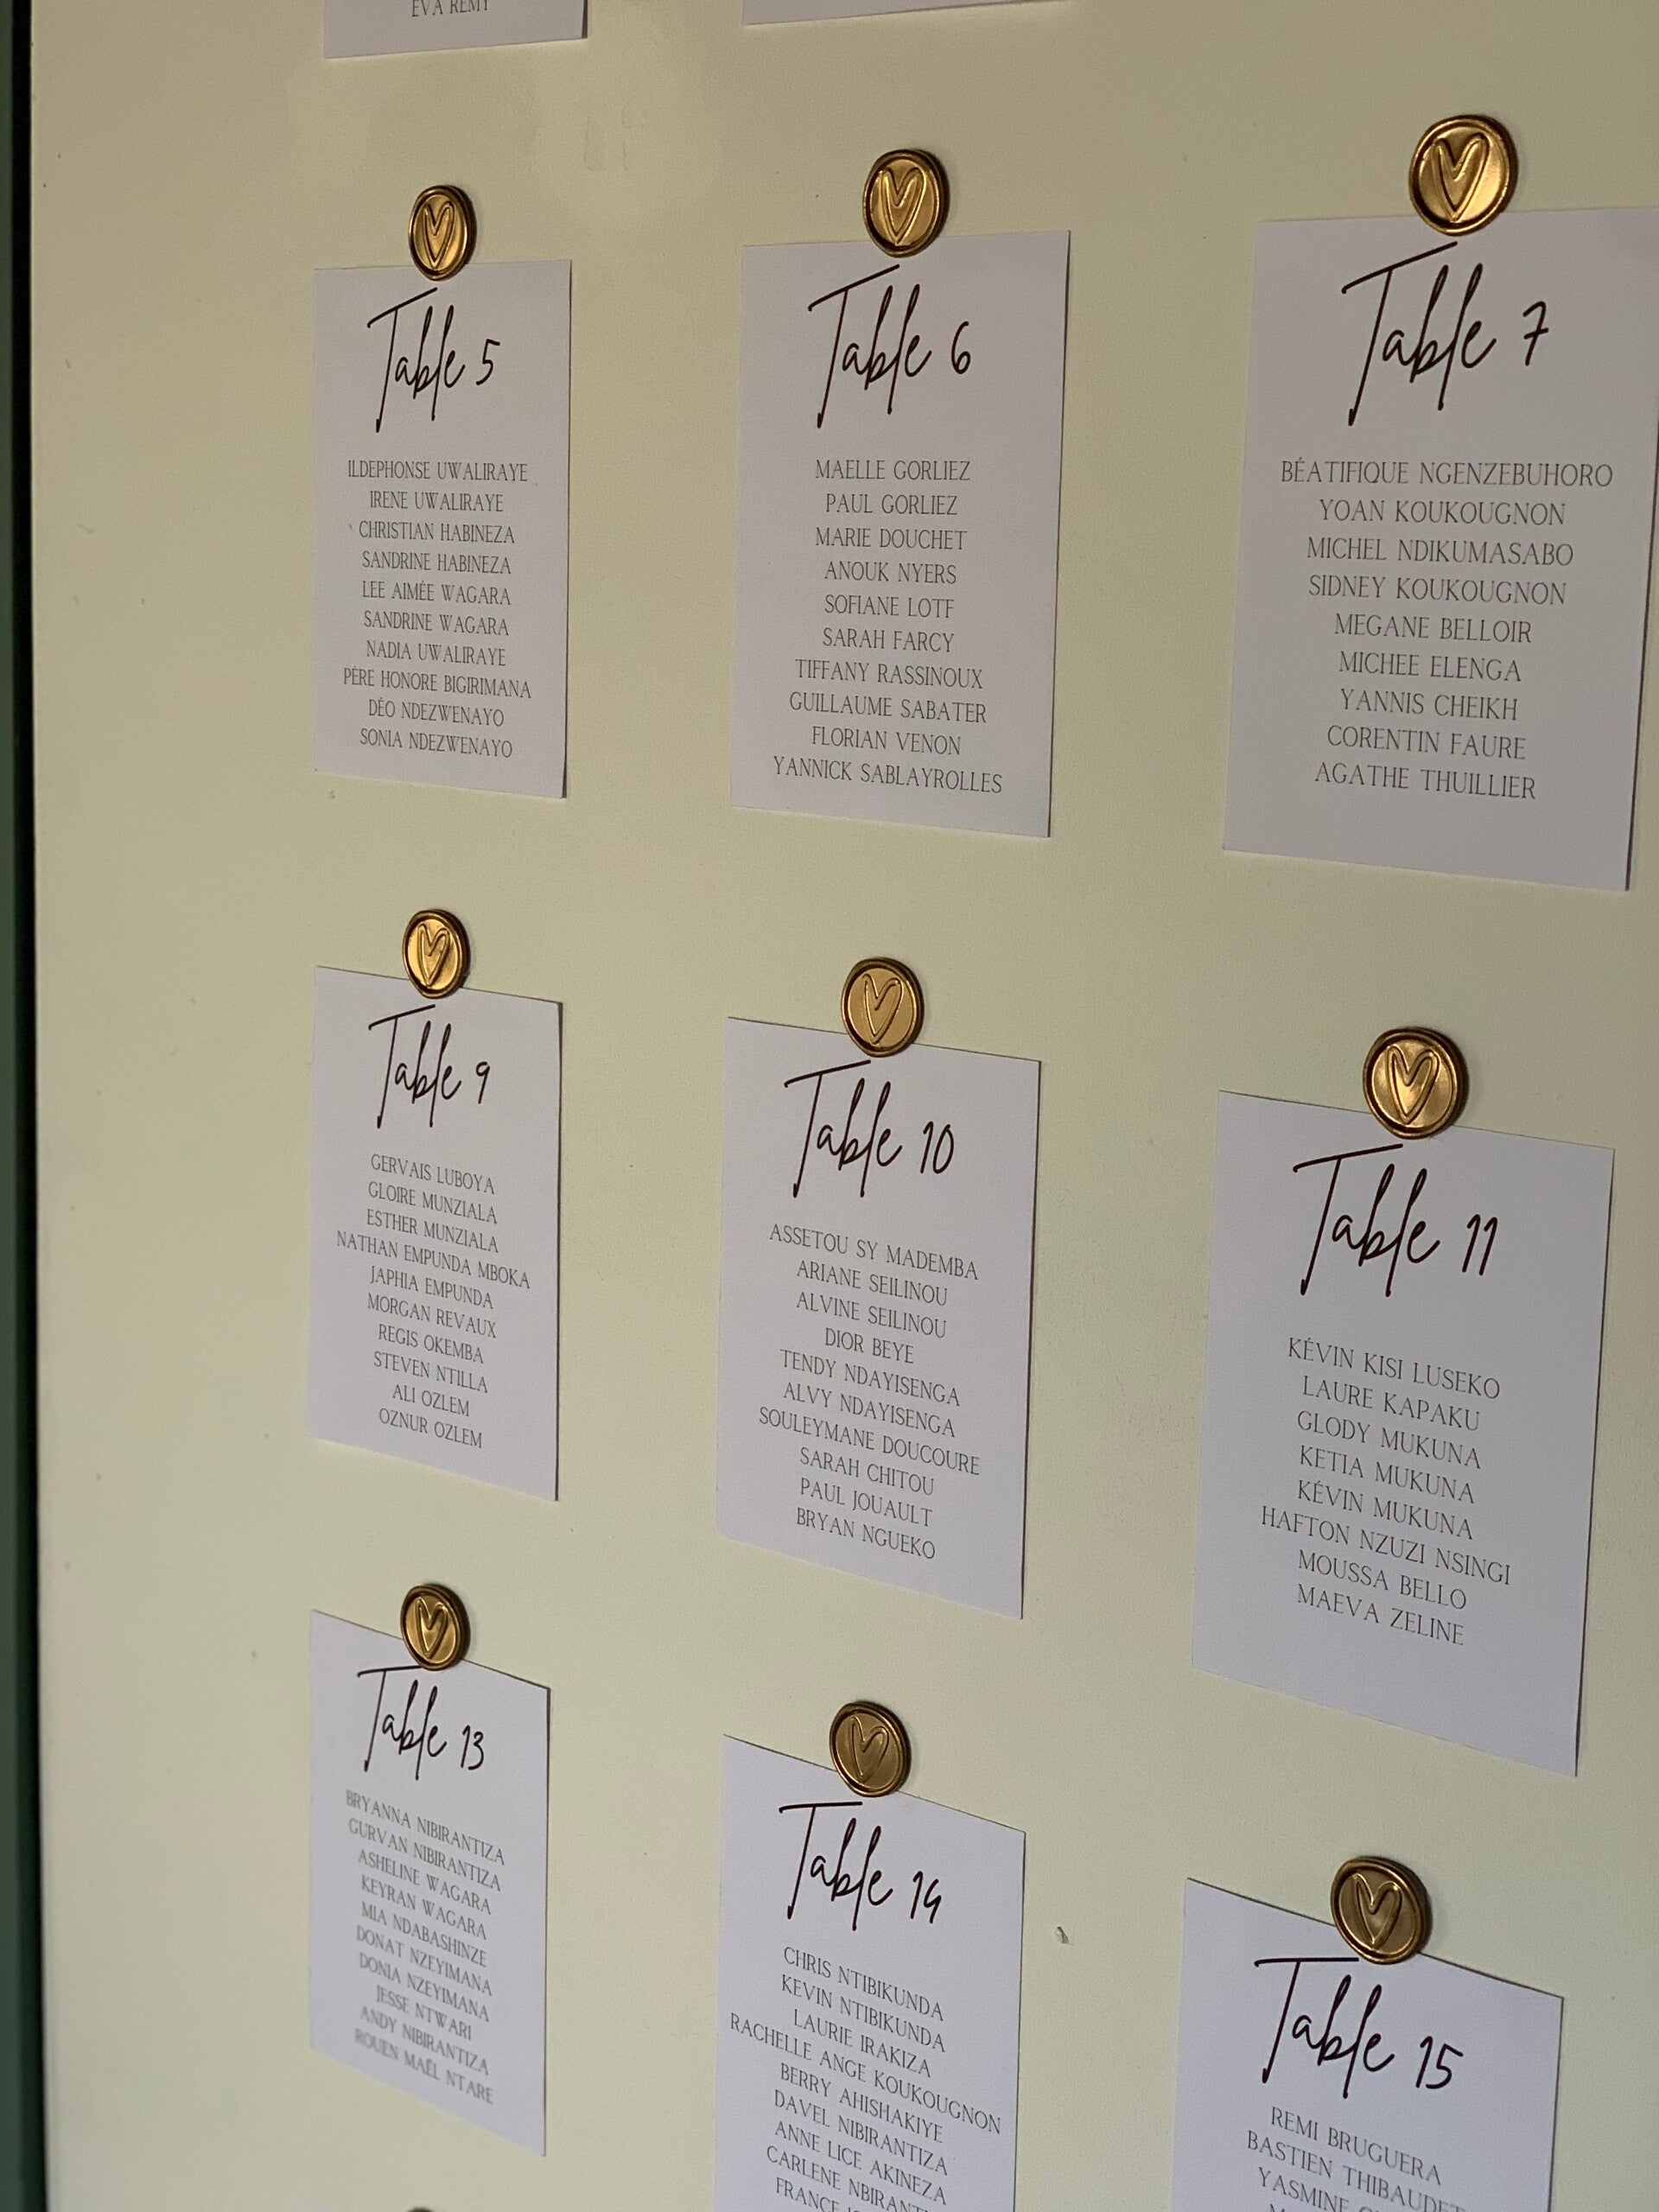 EVA REMY
Table 5
ILDEPHONSE UWALIRAYE
IRENE UWALIRAYE
CHRISTIAN HABINEZA
SANDRINE HABINEZA
LEE AIMÉE WAGARA
SANDRINE WAGARA
NADIA UWALIRAYE
PÈRE HONORE BIGIRIMANA
DÉO NDEZWENAYO
SONIA NDEZWENAYO
Table 6
MAELLE GORLIEZ
PAUL GORLIEZ
MARIE DOUCHET
ANOUK NYERS
SOFIANE LOTF
SARAH FARCY
TIFFANY RASSINOUX
GUILLAUME SABATER
FLORIAN VENON
YANNICK SABLAYROLLES
Table 7
BÉATIFIQUE NGENZEBUHORO
YOAN KOUKOUGNON
MICHEL NDIKUMASABO
SIDNEY KOUKOUGNON
MEGANE BELLOIR
MICHEE ELENGA
YANNIS CHEIKH
CORENTIN FAURE
AGATHE THUILLIER
Table 9
GERVAIS LUBOYA
GLOIRE MUNZIALA
ESTHER MUNZIALA
NATHAN EMPUNDA MBOKA
JAPHIA EMPUNDA
MORGAN REVAUX
REGIS OKEMBA
STEVEN NTILLA
ALI OZLEM
OZNUR OZLEM
Table 10
ASSETOU SY MADEMBA
ARIANE SEILINOU
ALVINE SEILINOU
DIOR BEYE
TENDY NDAYISENGA
ALVY NDAYISENGA
SOULEYMANE DOUCOURE
SARAH CHITOU
PAUL JOUAULT
BRYAN NGUEKO
Table 11
KÉVIN KISI LUSEKO
LAURE KAPAKU
GLODY MUKUNA
KETIA MUKUNA
KÉVIN MUKUNA
HAFTON NZUZI NSINGI
MOUSSA BELLO
MAEVA ZELINE
Table 13
BRYANNA NIBIRANTIZA
GURVAN NIBIRANTIZA
ASHELINE WAGARA
KEYRAN WAGARA
MIA NDABASHINZE
DONAT NZEYIMANA
DONIA NZEYIMANA
JESSE NTWARI
ANDY NIBIRANTIZA
ROUEN MAËL NTARE
Table 14
CHRIS NTIBIKUNDA
KEVIN NTIBIKUNDA
LAURIE IRAKIZA
RACHELLE ANGE KOUKOUGNON
BERRY AHISHAKIYE
DAVEL NIBIRANTIZA
ANNE LICE AKINEZA
CARLENE
FRANCE
Table 15
REMI BRUGUERA
BASTIEN THIBAUDET
YASMINE